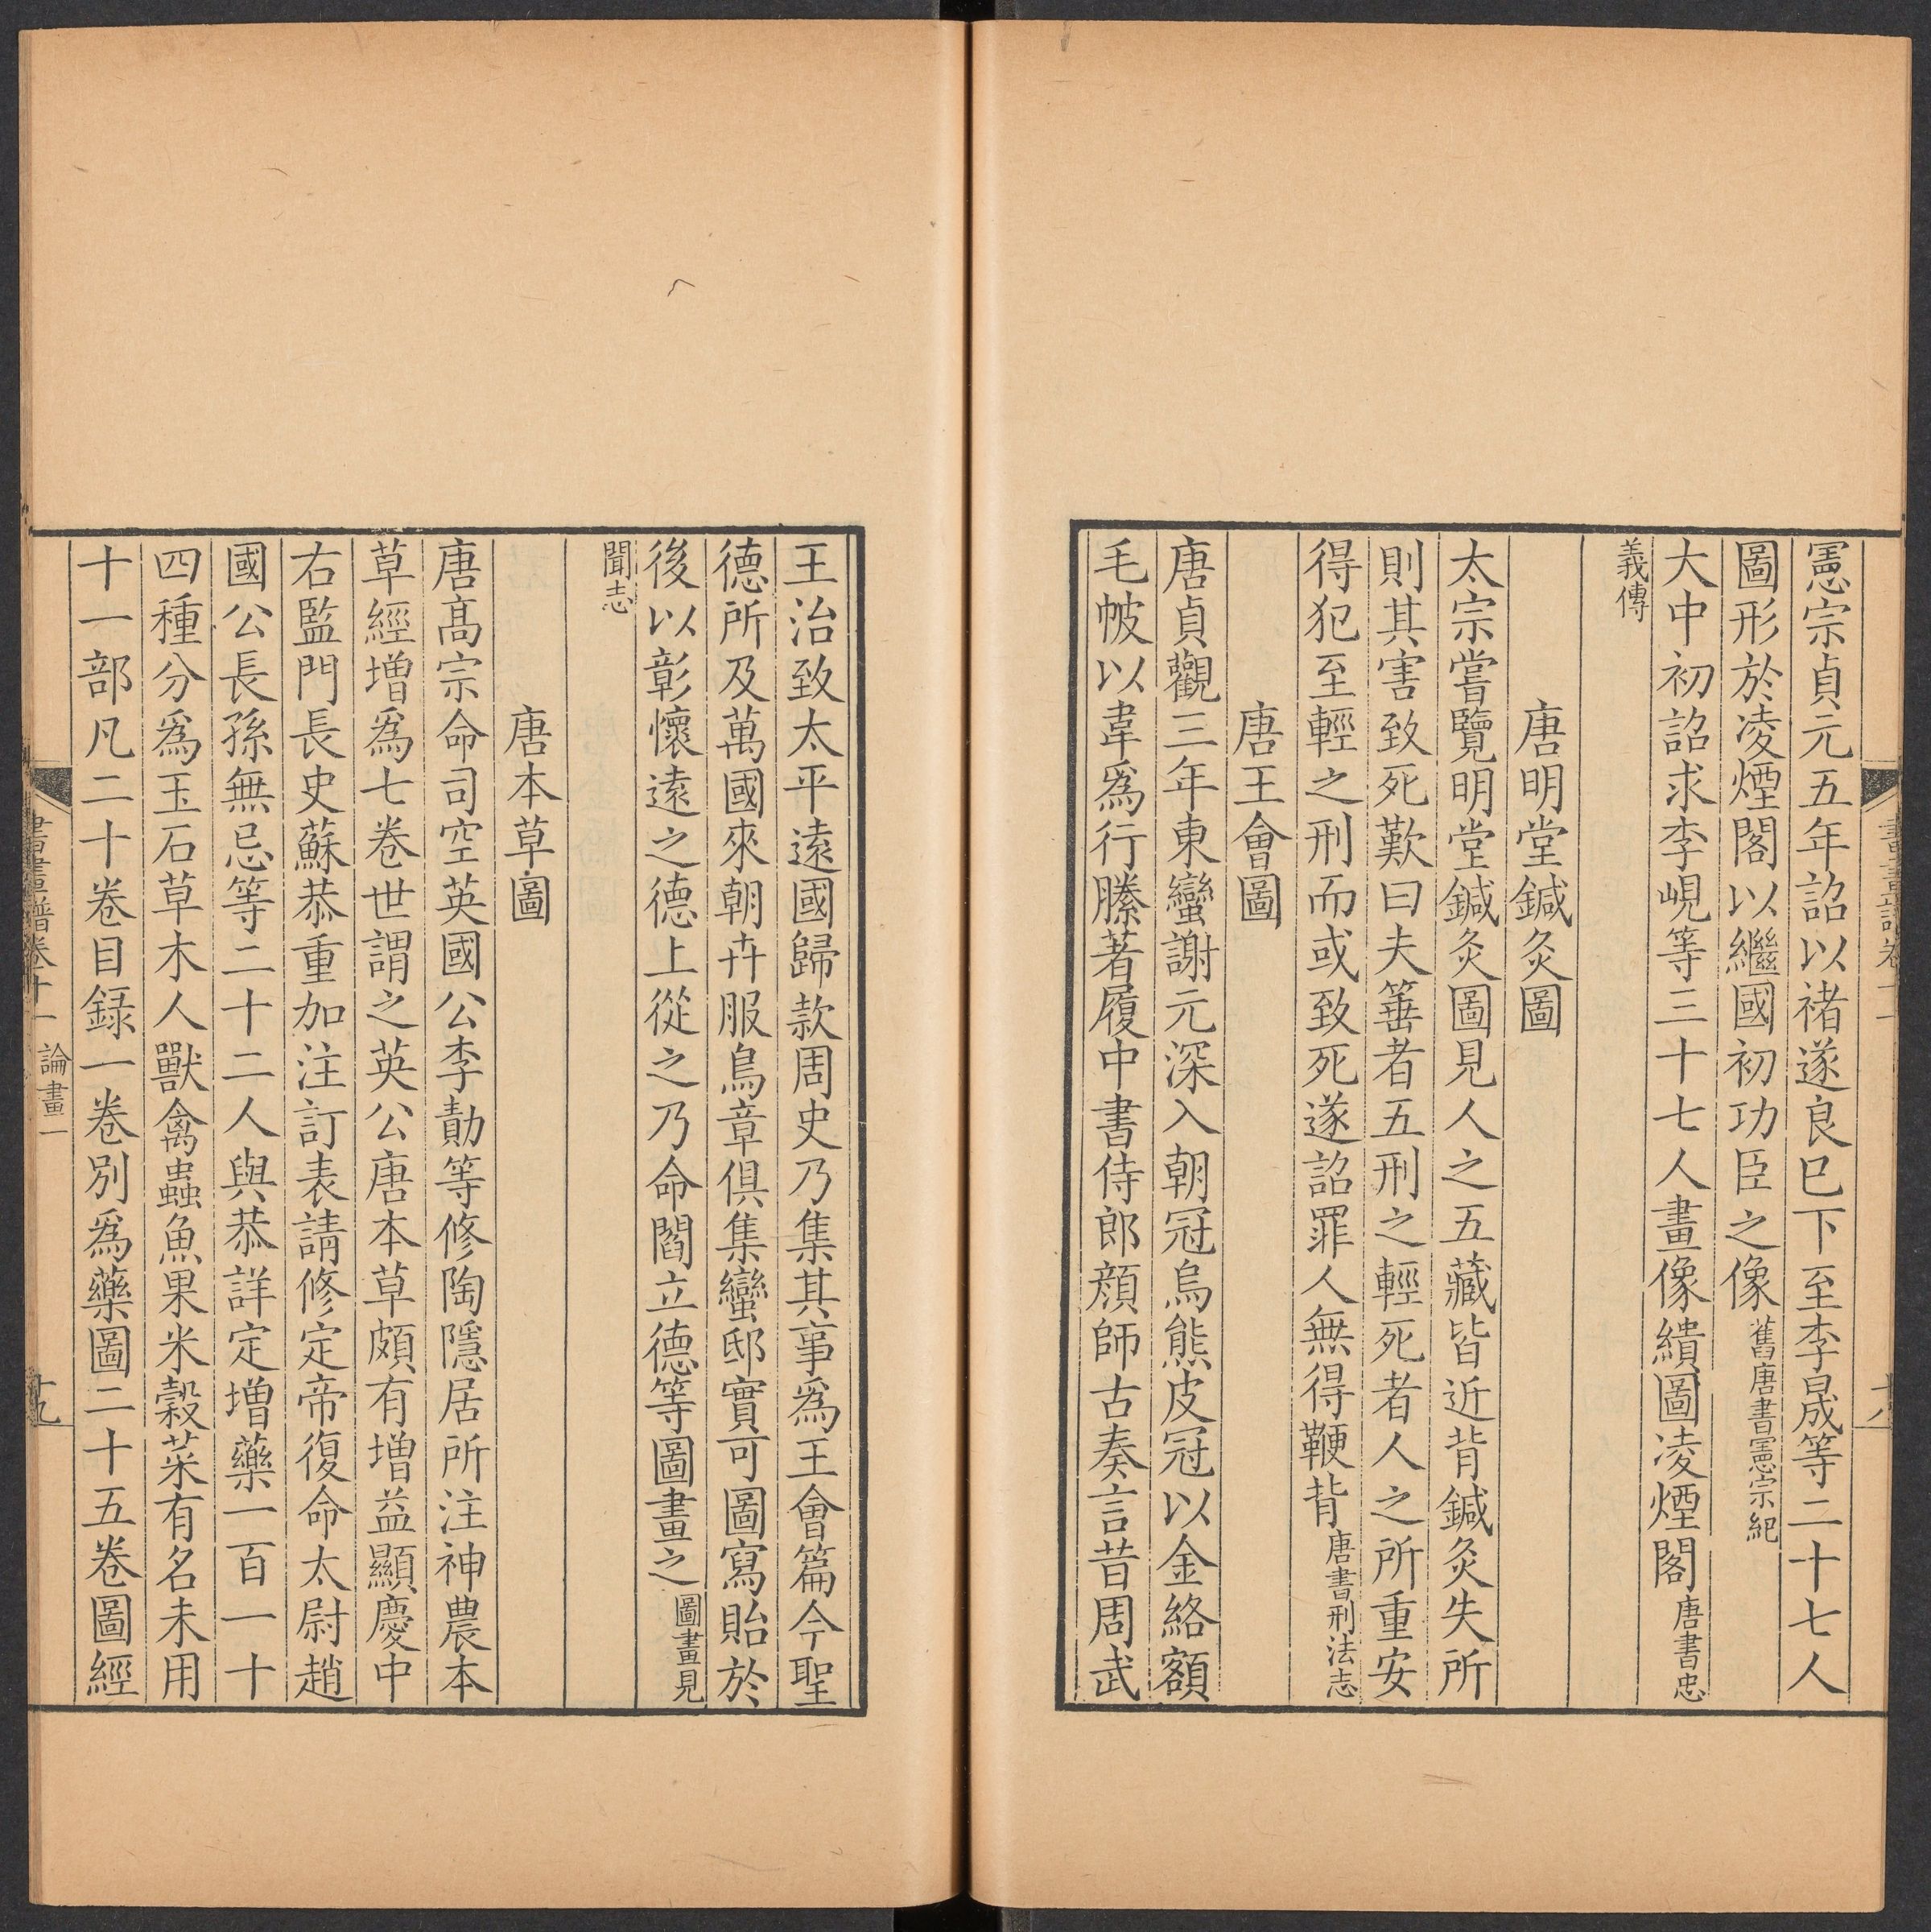 憲宗貞元五年詔以褚遂良巳下至李晟等二十七人
圖形於凌煙閣以繼國初功臣之像舊唐書憲宗紀
大中初詔求李峴等三十七人畫像繢圖凌煙閣唐書忠
義傳
唐明堂鍼灸圖
太宗嘗覽明堂鍼灸圖見人之五藏皆近背鍼灸失所
則其害致死歎曰夫箠者五刑之輕死者人之所重安
得犯至輕之刑而或致死遂詔罪人無得鞭背唐書刑法志
唐王會圖
唐貞觀三年東蠻謝元深入朝冠烏熊皮冠以金絡額
毛帔以韋爲行縢著履中書侍郎顏師古奏言昔周武
王治致太平遠國歸款周史乃集其事爲王會篇今聖
德所及萬國來朝卉服鳥章俱集蠻邸實可圖寫貽於
後以彰懷遠之德上從之乃命閻立德等圖畫之圖畫見
聞志
唐本草圖
唐髙宗命司空英國公李勣等修陶隱居所注神農本
草經增爲七卷世謂之英公唐本草頗有增益顯慶中
右監門長史蘇恭重加注訂表請修定帝復命太尉趙
國公長孫無忌等二十二人與恭詳定增藥一百一十
四種分爲玉石草木人獸禽蟲魚果米榖菜有名未用
十一部凡二十卷目録一卷別爲藥圖二十五卷圖經
書畫譜卷十一 論畫一
十九